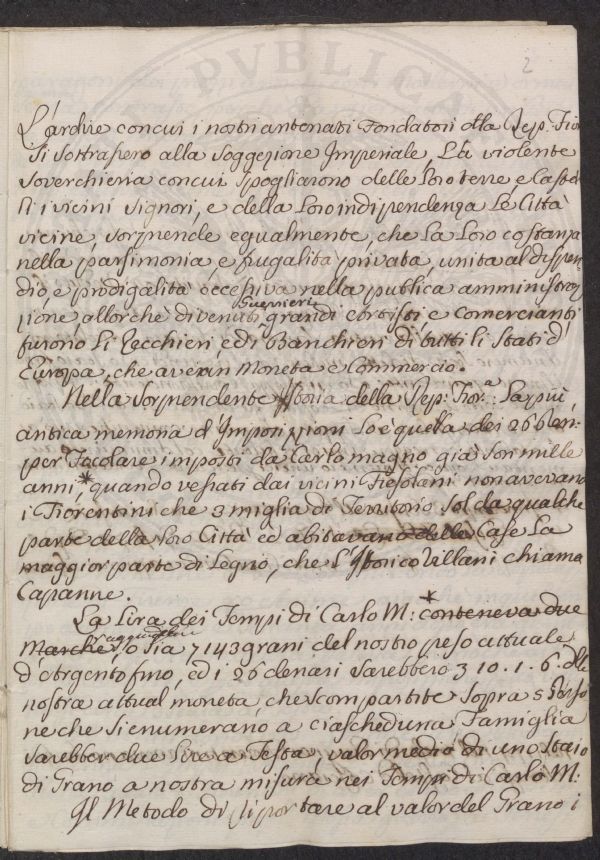 PVBLICA
2
L'ardire concui i nostri antenati Fondatori della Rep: Fior
si sottrassero alla soggezione Imperiale, La violente
soverchieria concui spogliarono delle loro terre, e Castel
li i vicini signori, e della Loro indipendenza Le Città
vicine, sorprende egualmente, che La Loro costanza
nella parsimonia, e frugalità privata, unita al dispen
dio, e prodigalità eccessiva nella publica amministra
zione, allorche divenuti Guerrieri grandi e comercianti
furono li Zecchieri, ed i Banchieri di tutti li Stati d'
Europa, che avevan Moneta e Commercio.
Nella sorprendente Istoria della Rep: Fior:a La più
antica memoria d'Imposizzioni Lo è quella dei 26 Den:
per Focolare imposti da Carlo magno già son mille
anni,* quando vessati dai vicini Fiesolani non avevano
i Fiorentini che 3 miglia di Territorio sol da qualche
parte della loro Città ed abitavano delle Case La
maggior parte di Legno, che l'Istorico Villani chiama
Capanne.
La Lira dei Tempi di Carlo M: * conteneva due
Marche, o sia 7143 grani del nostro peso attuale
d'Argento fino, ed i 26 denari sarebbero 310.1.6. della
nostra attual moneta, che scompartite sopra 5 Perso
ne che si enumerano a ciascheduna Famiglia
sarebber due Lire a Testa, valor medio di uno staio
di Grano a nostra misura nei Tempi di Carlo M:
Il Metodo di riportare al valor del Grano i